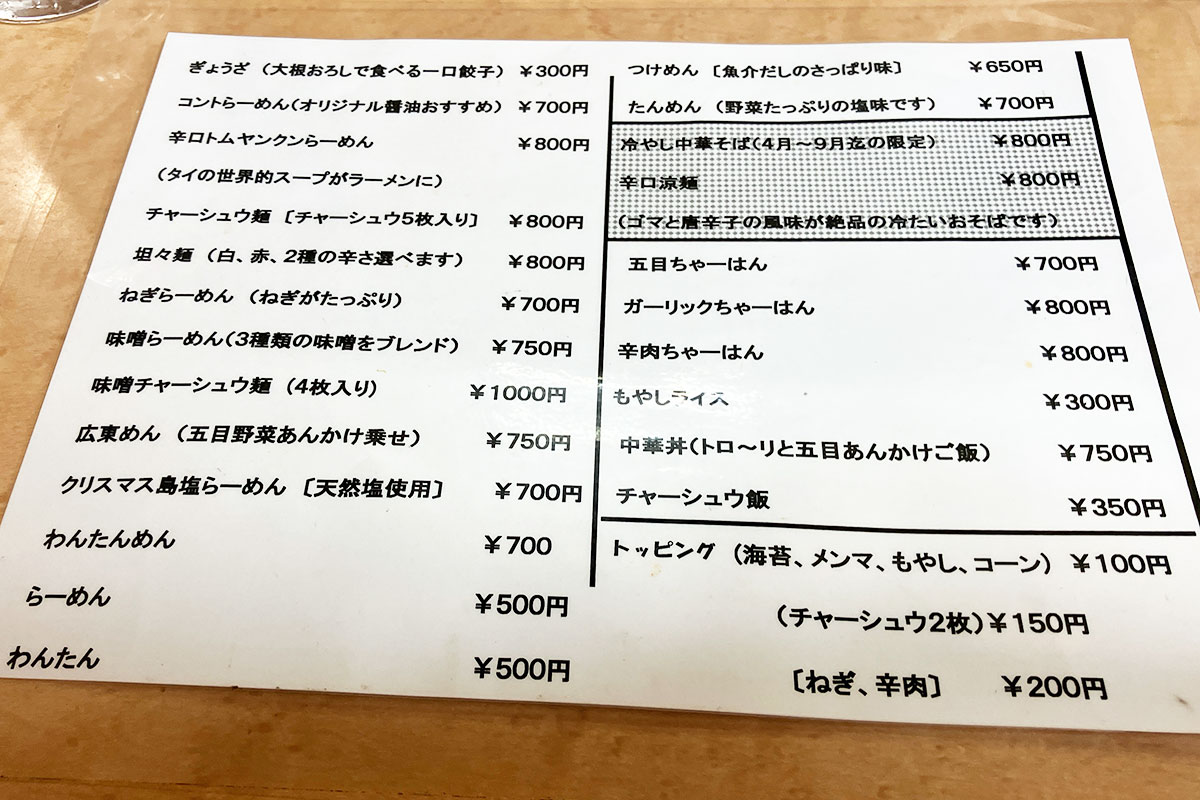 ぎょうざ（大根おろしで食べる一口餃子） ￥300円
コントらーめん（オリジナル醤油おすすめ） ￥700円
辛口トムヤンクンらーめん ￥800円
（タイの世界的スープがラーメンに）
チャーシュウ麺［チャーシュウ5枚入り］ ￥800円
坦々麺（白、赤、2種の辛さ選べます） ￥800円
ねぎらーめん（ねぎがたっぷり） ￥700円
味噌らーめん（3種類の味噌をブレンド） ￥750円
味噌チャーシュウ麺（4枚入り） ￥1000円
広東めん（五目野菜あんかけ乗せ） ￥750円
クリスマス島塩らーめん［天然塩使用］ ￥700円
わんたんめん ￥700
らーめん ￥500円
わんたん ￥500円
つけめん［魚介だしのさっぱり味］ ￥650円
たんめん（野菜たっぷりの塩味です） ￥700円
冷やし中華そば（4月～9月迄の限定） ￥800円
辛口涼麺 ￥800円
（ゴマと唐辛子の風味が絶品の冷たいおそばです）
五目ちゃーはん ￥700円
ガーリックちゃーはん ￥800円
辛肉ちゃーはん ￥800円
もやしライス ￥300円
中華丼（トロ～リと五目あんかけご飯） ￥750円
チャーシュウ飯 ￥350円
トッピング（海苔、メンマ、もやし、コーン） ￥100円
（チャーシュウ2枚）￥150円
［ねぎ、辛肉］ ￥200円